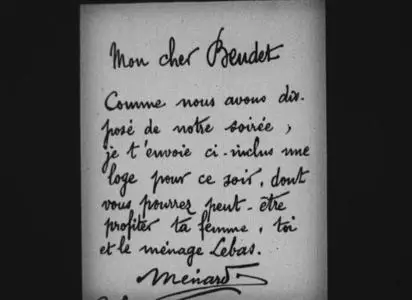 Mon cher Beudet
Comme nous avons dis-
posé de notre soirée,
je t'envoie ci-inclus une
loge pour ce soir, dont
vous pourrez peut-être
profiter ta femme, toi
et le ménage Lebas.
Ménard